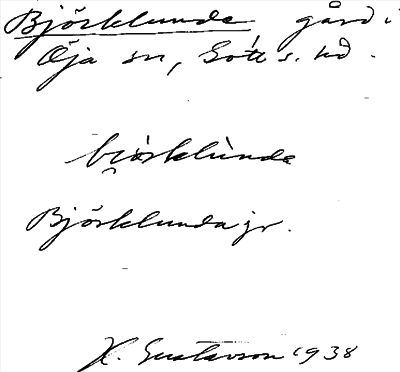 Björklunda gård i
Öja sn, Gotl. s. hd.
bjórklùnda
Björklunda gr.
H. Gustavson 1938